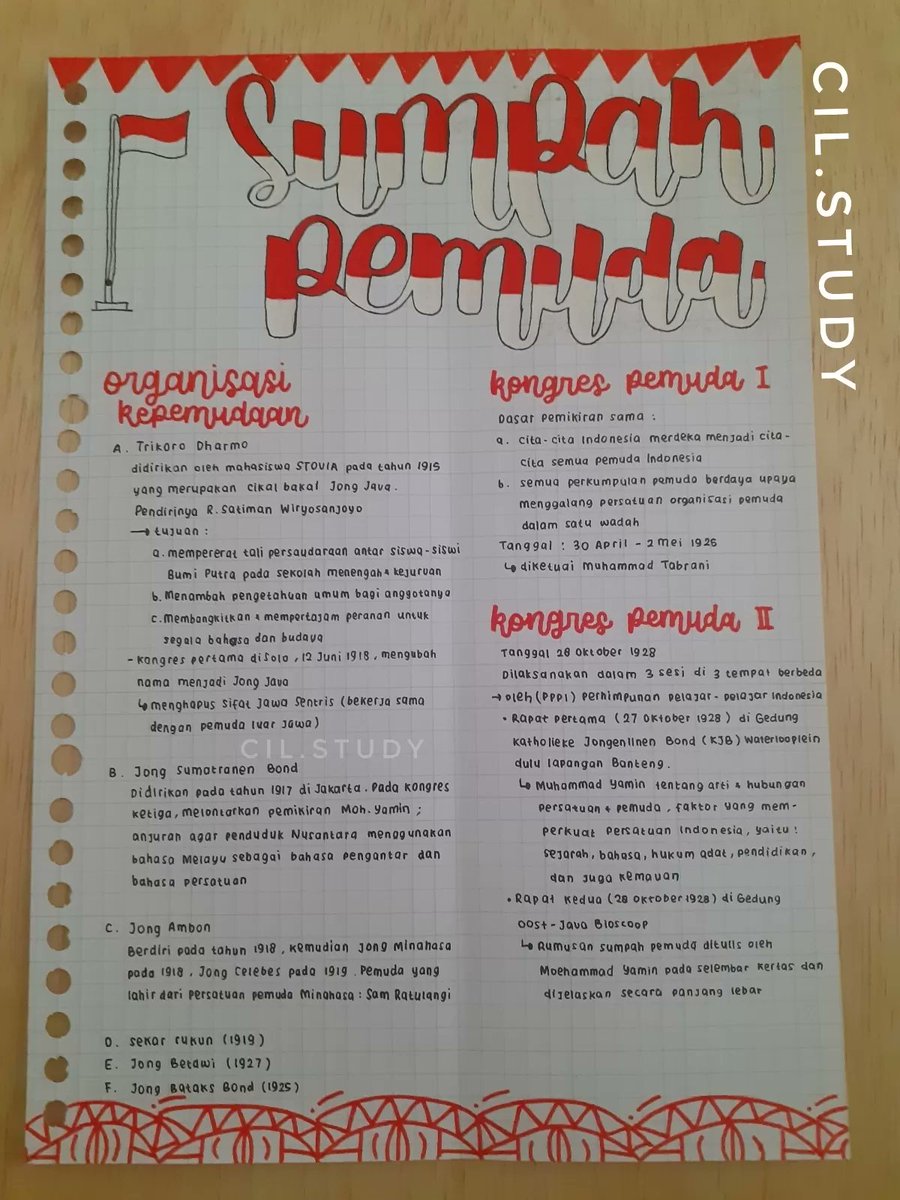 Sumpah
pemuda
CIL.STUDY
organisasi
kepemudaan
A. Trikoro Dharmo
didirikan oleh mahasiswa STOVIA pada tahun 1915
yang merupakan cikal bakal Jong Java.
Pendirinya R. Satiman Wiryosanjoyo
→ tujuan :
a. mempererat tali persaudaraan antar siswa-siswi
Bumi Putra pada sekolah menengah & kejuruan
b. Menambah pengetahuan umum bagi anggotanya
c. Membangkitkan & mempertajam peranan untuk
segala bahasa dan budaya
- Kongres pertama di Solo, 12 Juni 1918, mengubah
nama menjadi Jong Java
↳ menghapus sifat Jawa Sentris (bekerja sama
dengan pemuda luar Jawa)
CIL.STUDY
B. Jong Sumatranen Bond
Didirikan pada tahun 1917 di Jakarta. Pada kongres
ketiga, melontarkan pemikiran Moh. Yamin ;
anjuran agar penduduk Nusantara menggunakan
bahasa Melayu sebagai bahasa pengantar dan
bahasa persatuan
C. Jong Ambon
Berdiri pada tahun 1918, kemudian Jong Minahasa
pada 1918, Jong Celebes pada 1919. Pemuda yang
lahir dari Persatuan pemuda Minahasa : Sam Ratulangi
D. sekar rukun (1919)
E. Jong Betawi (1927)
F. Jong Bataks Bond (1925)
kongres pemuda I
Dasar Pemikiran sama :
a. cita-cita Indonesia merdeka menjadi cita-
cita semua pemuda Indonesia
b. semua perkumpulan pemuda berdaya upaya
menggalang persatuan organisasi pemuda
dalam satu wadah
Tanggal : 30 April - 2 Mei 1926
↳ diketuai Muhammad Tabrani
kongres pemuda II
Tanggal 28 Oktober 1928
Dilaksanakan dalam 3 sesi di 3 tempat berbeda
→ oleh (PPPI) Perhimpunan pelajar-pelajar Indonesia
• Rapat pertama (27 Oktober 1928) di Gedung
Katholieke Jongenlinen Bond (KJB) Waterlooplein
dulu lapangan Banteng.
↳ Muhammad Yamin tentang arti & hubungan
persatuan & pemuda, faktor yang mem-
perkuat Persatuan Indonesia, yaitu :
sejarah, bahasa, hukum adat, pendidikan,
dan juga kemauan
• Rapat kedua (28 Oktober 1928) di Gedung
Oost-Java Bioscoop
↳ Rumusan sumpah pemuda ditulis oleh
Moehammad Yamin pada selembar kertas dan
dijelaskan secara panjang lebar